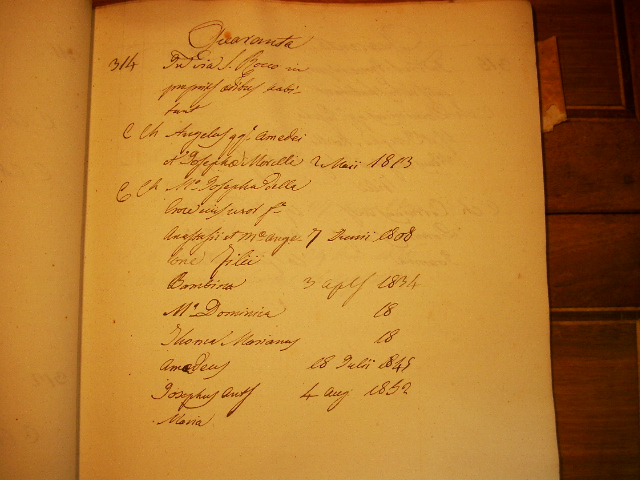 Quaranta
314 In via S. Rocco in
propriis ædibus habi-
tant
C Ch Angelus qq. Amedei
et Josephæ Morelli 2 Maii 1813
C Ch Ma. Josepha Della
Croce ejus uxor fa.
Anastasii et Ma. Ange- 7 Junii 1808
lone Filii
Bambina 3 aplis 1834
Ma. Dominica 18
Thomas Marianus 18
Amedeus 18 Julii 1845
Josephus Ants 4 Aug 1852
Maria